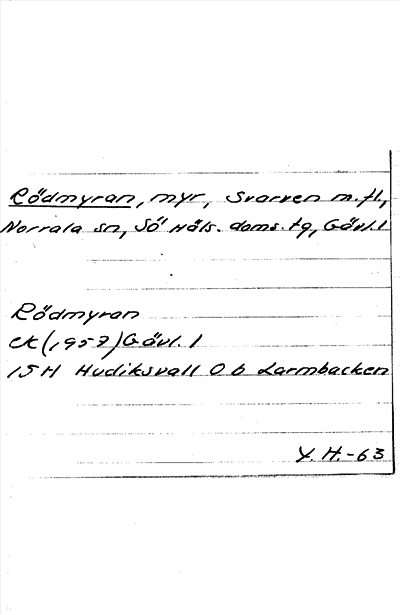 Rödmyran, myr, Svarven m.fl.,
Norrala sn, Sö Häls. doms. tg, Gävl.l
Rödmyran
ek (1957) Gävl. l
15H Hudiksvall 0 b Larmbacken
Y. H. -63